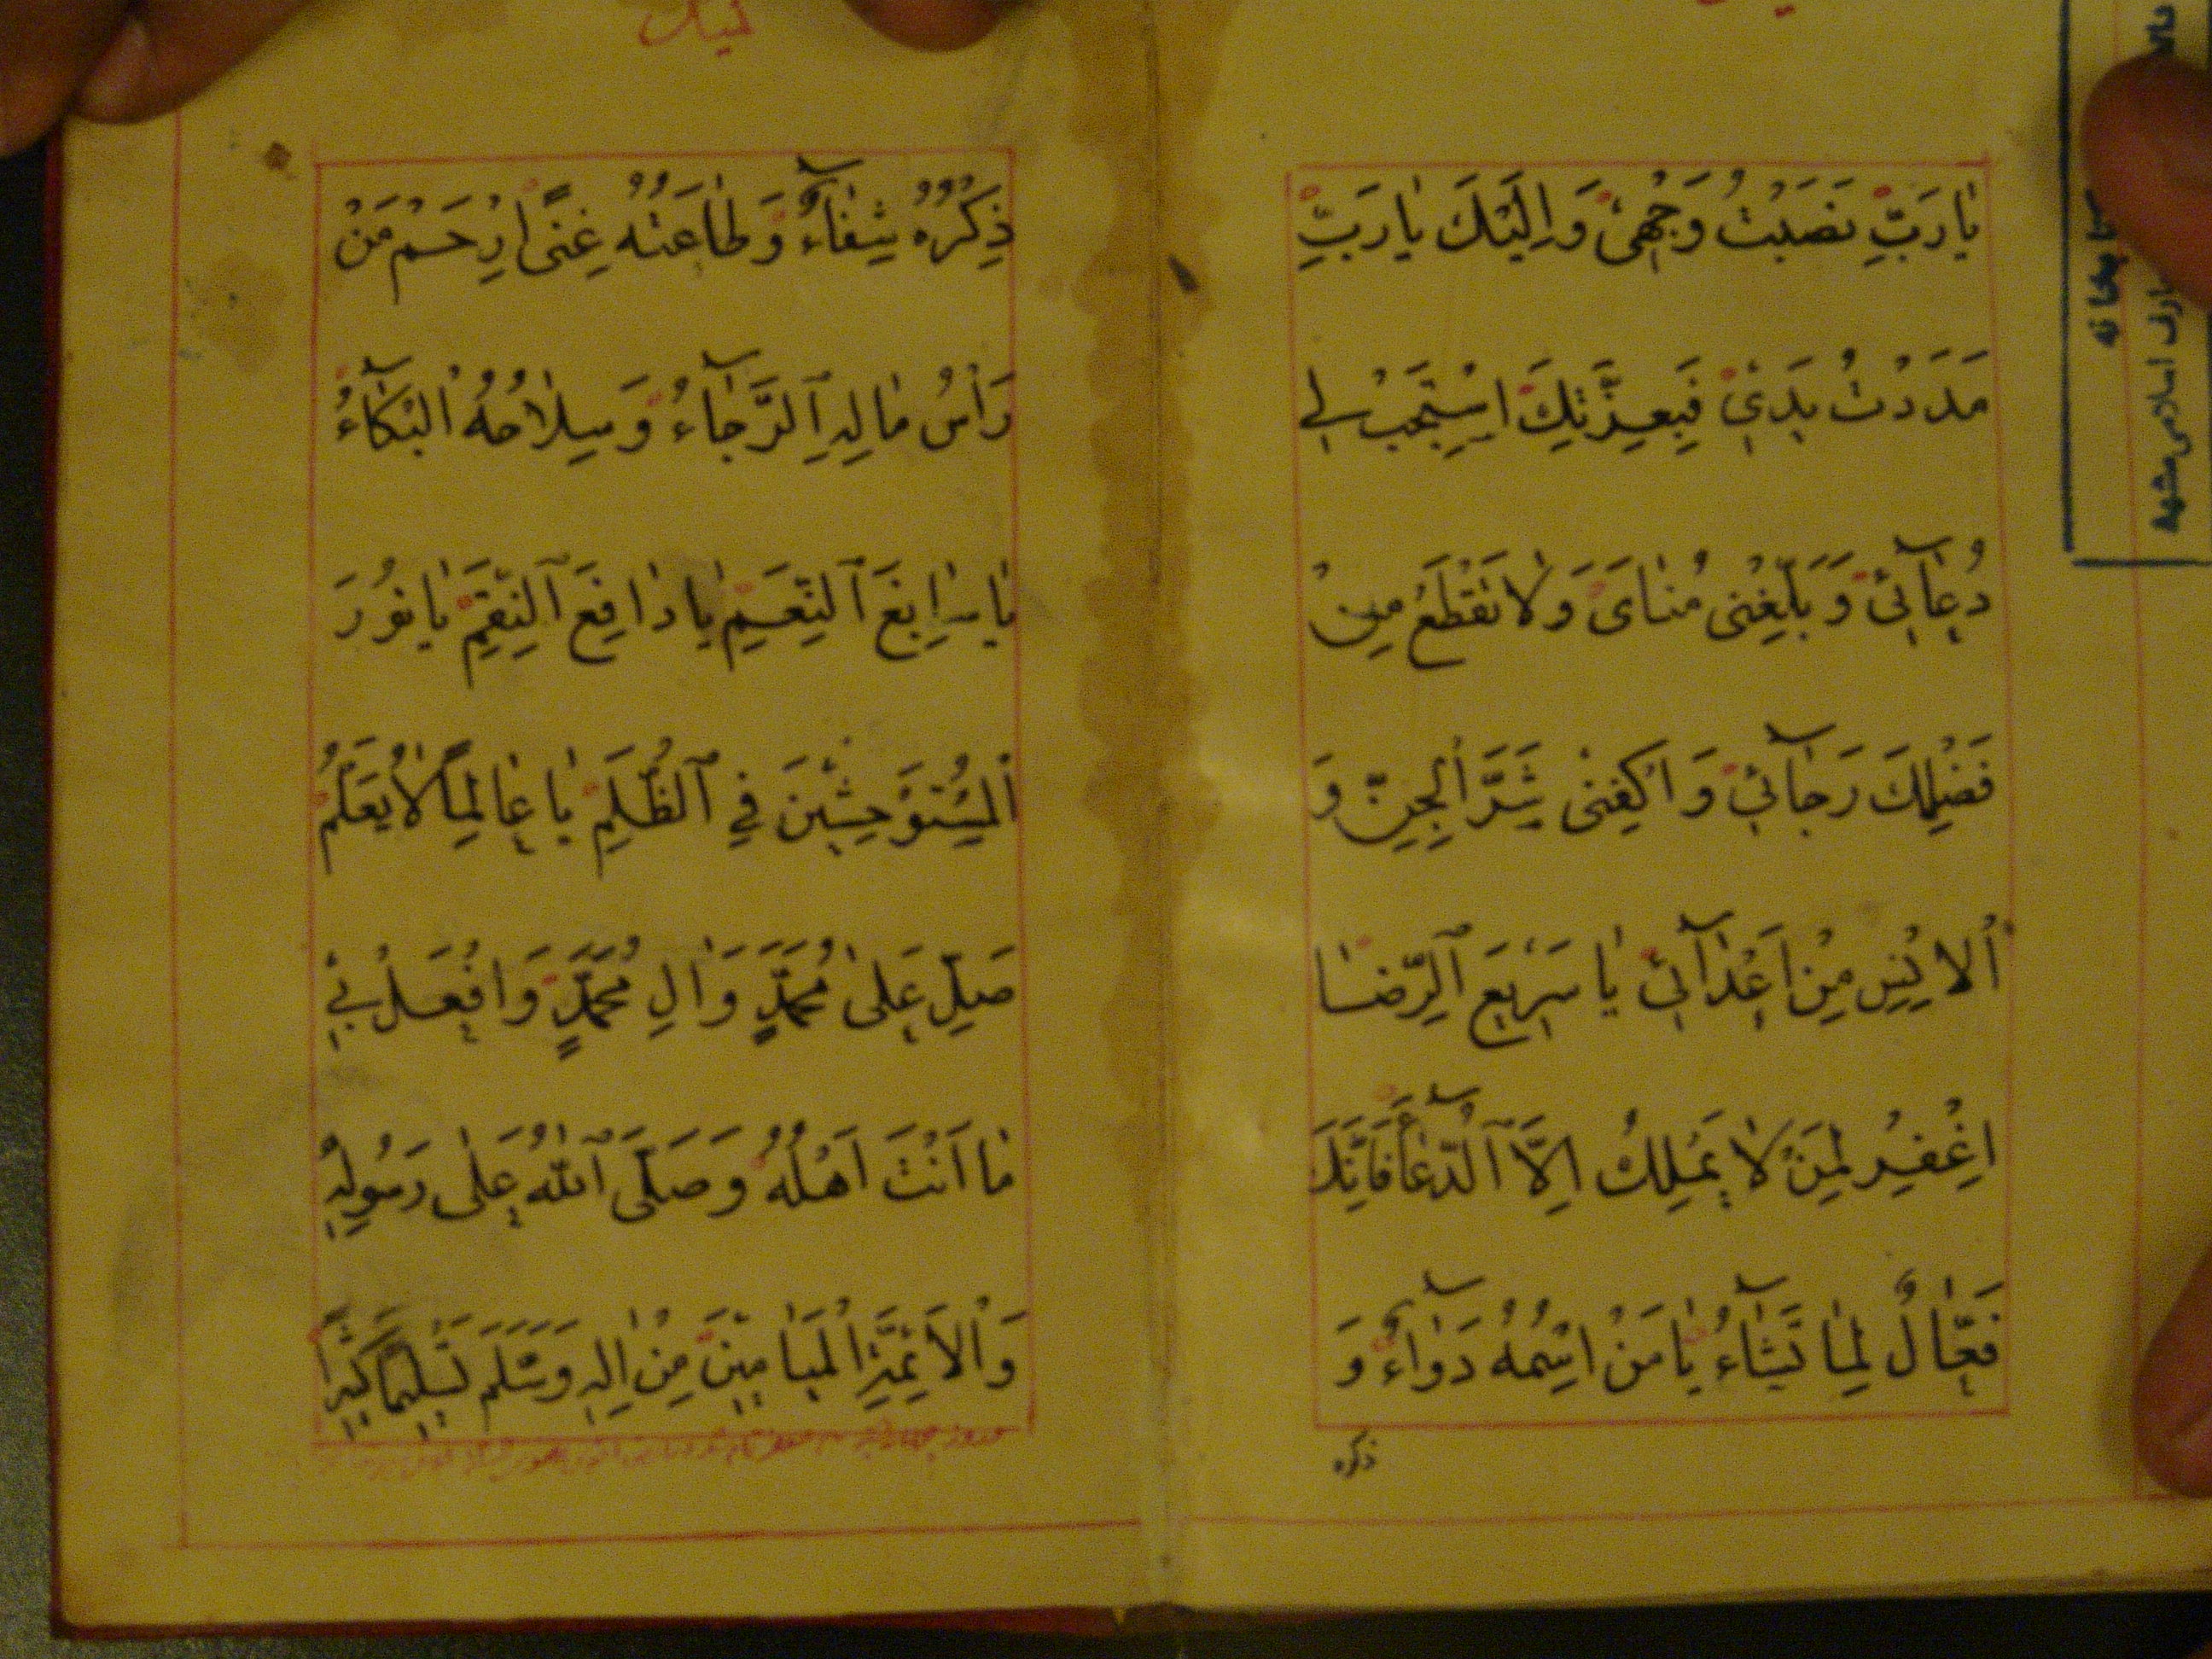 يٰا رَبِّ نَصَبْتُ وَجْهِىْ وَاِلَيْكَ يٰا رَبِّ
مَدَدْتُ يَدِىْ فَبِعِزَّتِكَ اسْتَجِبْ لِى
دُعٰآئِىْ وَبَلِّغْنِى مُنٰاىَ وَلٰا تَقْطَعْ مِنْ
فَضْلِكَ رَجٰآئِى وَاكْفِنِى شَرَّ الْجِنِّ وَ
الْاِنْسِ مِنْ اَعْدٰآئِى يٰا سَرِيعَ الرِّضٰا
اِغْفِرْ لِمَنْ لٰا يَمْلِكُ اِلَّا الدُّعٰآءَ فَاِنَّكَ
فَعّٰالٌ لِمٰا تَشٰآءُ يٰا مَنْ اسْمُهُ دَوٰآءٌ وَ
ذكره
ذِكْرُهُ شِفٰآءٌ وَطٰاعَتُهُ غِنًى اِرْحَمْ مَنْ
رَأْسُ مٰالِهِ الرَّجٰآءُ وَسِلٰاحُهُ الْبُكٰآءُ
يٰا سٰابِغَ النِّعَمِ يٰا دٰافِعَ النِّقَمِ يٰا نُورَ
الْمُسْتَوْحِشِينَ فِي الظُّلَمِ يٰا عٰالِمًا لٰا يُعَلَّمُ
صَلِّ عَلٰى مُحَمَّدٍ وَاٰلِ مُحَمَّدٍ وَافْعَلْ بِى
مٰا اَنْتَ اَهْلُهُ وَصَلَّى اللّٰهُ عَلٰى رَسُولِهِ
وَالْاَئِمَّةِ الْمَيٰامِينَ مِنْ اٰلِهِ وَسَلَّمَ تَسْلِيمًا كَثِيرًا
كتابخانه
اسلامى مشهد